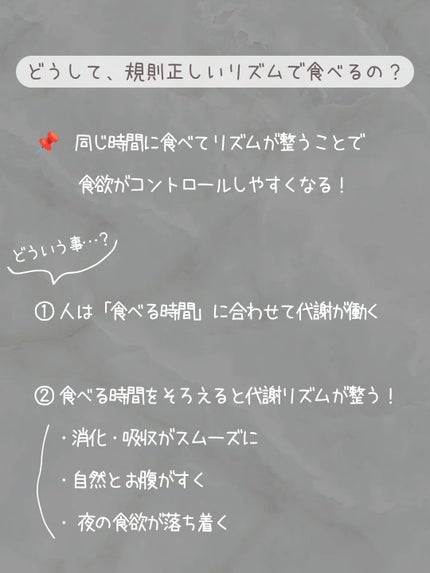 どうして、規則正しいリズムで食べるの？
📌 同じ時間に食べてリズムが整うことで
食欲がコントロールしやすくなる！
どういう事…？
① 人は「食べる時間」に合わせて代謝が働く
② 食べる時間をそろえると代謝リズムが整う！
・消化・吸収がスムーズに
・自然とお腹がすく
・ 夜の食欲が落ち着く